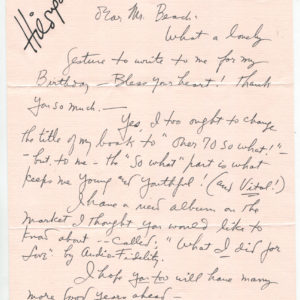 Dear Mr. Beach:
What a lovely
gesture to write to me for my
Birthday — Bless your heart! Thank
you so much. —
Yes, I too ought to change
the title of my book to "Over 70 So what!" —
— but, to me — the "So what" part is what
keeps me young and youthful! (and Vital!)
I have a new album on the
Market I thought you would like to
know about -- called: "What I did for
Love" by Audio Fidelity.
I hope you too will have many
more good years ahead —